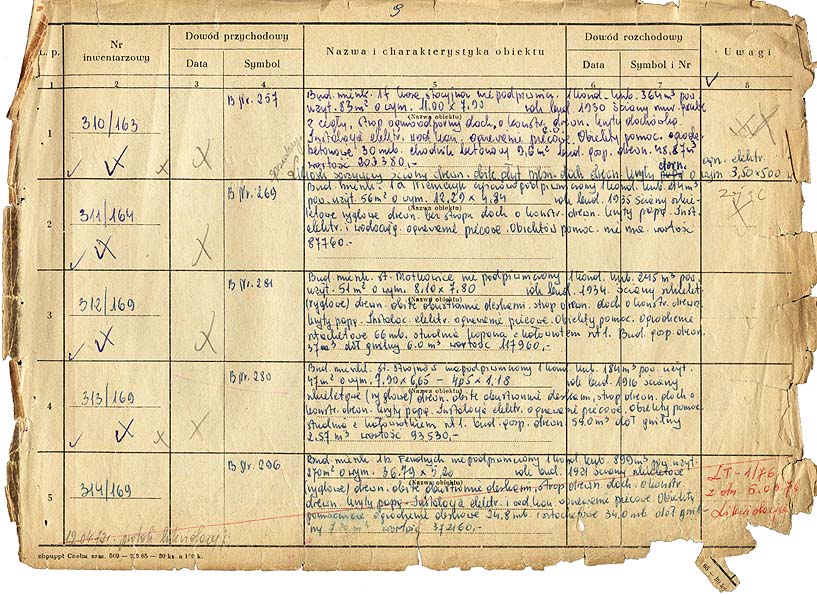 9
L. p.
Nr inwentarzowy
Dowód przychodowy
Data
Symbol
Nazwa i charakterystyka obiektu
Dowód rozchodowy
Data
Symbol i Nr
Uwagi
1
2
3
4
5
6
7
8
1
310/163
B Nr. 257
Bud. mieszk. st. stacyjna nie podpiwnicz. 1 kond. kub. 364 m³ pow.
użyt. 83 m² o wym. 11.00 x 7.90 rok bud. 1950 ściany mur.
(Nazwa obiektu)
z cegły, strop ognioodporny dach o konstr. drewn. kryty dachówką.
Instalacja elektr. wod. kan. ogrzewanie piecowe. Obiekty pomoc. ogrodz.
betonowe 30 mb. chodnik betonowy 9,6 m² bud. gosp. drewn. 48.87 m³
wartość 203380,-
ściany drewn. obite płyt. dach drewn. kryty o wym 3,50x500
elektr.
2
311/164
B Nr. 269
Bud. mieszk. 1a podpiwniczony 1 kond. kub. 214 m³
pow. użyt. 56 m² o wym. 12,29 x 4,84 rok bud. 1935 ściany szkie-
(Nazwa obiektu)
letowe ryglowe drewn. bez stropu dach o konstr. drewn. kryty papą. Inst.
elektr. i wodociąg. ogrzewanie piecowe. Obiektów pomoc. nie ma wartość
87760.-
3
312/169
B Nr. 281
Bud. mieszk. st. Motkowice nie podpiwniczony 1 kond. kub. 245 m³ pow.
użyt. 51 m² o wym. 8,10 x 7.80 rok bud. 1934. Ściany szkielet.
(Nazwa obiektu)
(ryglowe) drewn. obite obustronnie deskami. strop drewn. dach o konstr. drewn.
kryty papą. Instalac. elektr. ogrzewanie piecowe. Obiekty pomoc. Ogrodzenie
sztachetowe 66 mb. studnia kopana z kołowrotem szt 1. Bud. gosp. drewn.
37 m³ dół gnilny 6.0 m³ wartość 117960,-
4
313/169
B Nr. 280
Bud. mieszk. st. Strojnów niepodpiwniczony 1 kond. kub. 184 m³ pow. użyt.
47 m² o wym. 7.90 x 6,65 – 4,05 x 1.18 rok bud. 1916 ściany
(Nazwa obiektu)
szkieletowe (ryglowe) drewn. obite obustronnie deskami, strop drewn. dach o
konstr. drewn. kryty papą. Instalacja elektr. ogrzewanie piecowe. Obiekty pomoc.
studnia z kołowrotkiem szt 1. bud. gosp. drewn 59.0 m³ dół gnilny
2.57 m³ wartość 93530,-
5
314/169
B Nr. 296
Bud. mieszk. niepodpiwniczony 1 kond. kub. 899 m³ pow. użyt.
270 m² o wym. 36.79 x 5,20 rok bud. 1921 ściany szkieletowe
(Nazwa obiektu)
(ryglowe) drewn. obite obustronnie deskami, strop drewn. dach. o konstr.
drewn. kryty papą. Instalacja elektr. i wod. kan. ogrzewanie piecowe. Obiekty
pomocnicze ogrodzenie deskowe 24.8 mb i sztachetowe 34.0 mb dół gnil-
ny 7.20 m³ wartość 372160.-
LT-1/76
z dn.
Likwidacja
chpuppt Czchw zam. 569 — 2.3.65 — 30 ks. a 100 k.